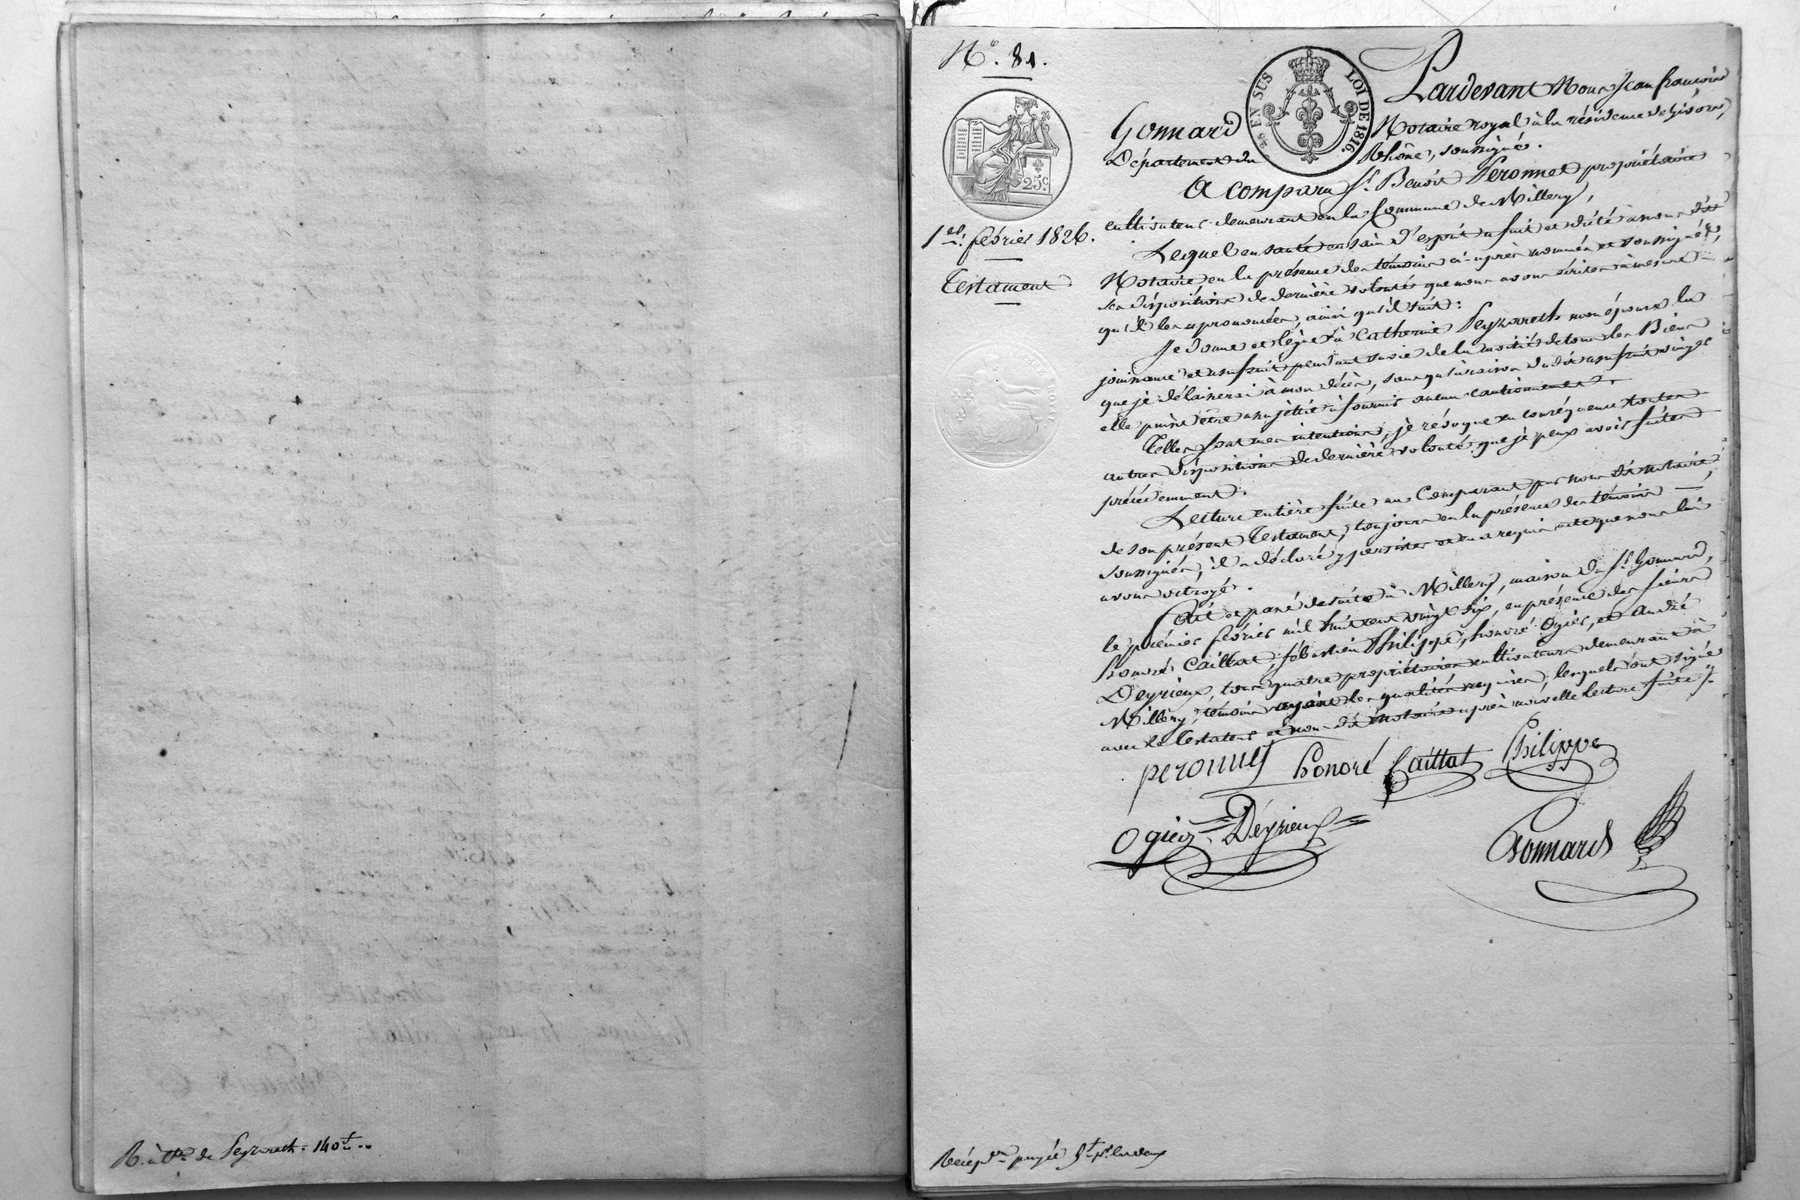 R. à Cne de Peyzareth = 140f..
N° 81.
25 EN SUS
LOI DE 1816.
25c
1er. février 1826.
Testament
Pardevant Nous Jean françois
Gonnard Notaire royal à la résidence de Givors,
Département du Rhône, soussigné.
A comparu Sr. Benoit Peronnet propriétaire
cultivateur demeurant en la Commune de Millery,
Lequel en santé et sain d'esprit a fait et dicté à nous dit
Notaire en la présence des témoins ci-après nommés et soussignés,
ses dispositions de dernière volonté que nous avons écrites à mesure
qu'il les a prononcées ainsi qu'il suit:
Je donne et lègue à Catherine Peyzareth mon épouse la
jouissance et usufruit pendant sa vie de la moitié de tous les Biens
que je délaisserai à mon décès, sans qu'à raison du dit usufruit
elle puisse être assujettie à fournir aucun cautionnement.
Telles sont mes intentions, je révoque en conséquence toutes
autres dispositions de dernière volonté que je peux avoir faites
précédemment.
Lecture entière faite au Comparant par nous dit Notaire
de son présent Testament, toujours en la présence des témoins
soussignés, il a déclaré y persister et en a requis acte que nous lui
avons octroyé.
Fait et passé de suite à Millery, maison du Sr. Gonnard,
le premier février mil huit cent vingt six, en présence des sieurs
honoré Caillat, sébastien Philippe, honoré Ogier, et André
Deyrieux, tous quatre propriétaires cultivateurs demeurant à
Millery, témoins ayant les qualités requises, lesquels ont signé
avec le Testateur et nous dit Notaire après nouvelle lecture faite
peronnet honoré Caillat Philippe
Ogier Déyrieux
Gonnard